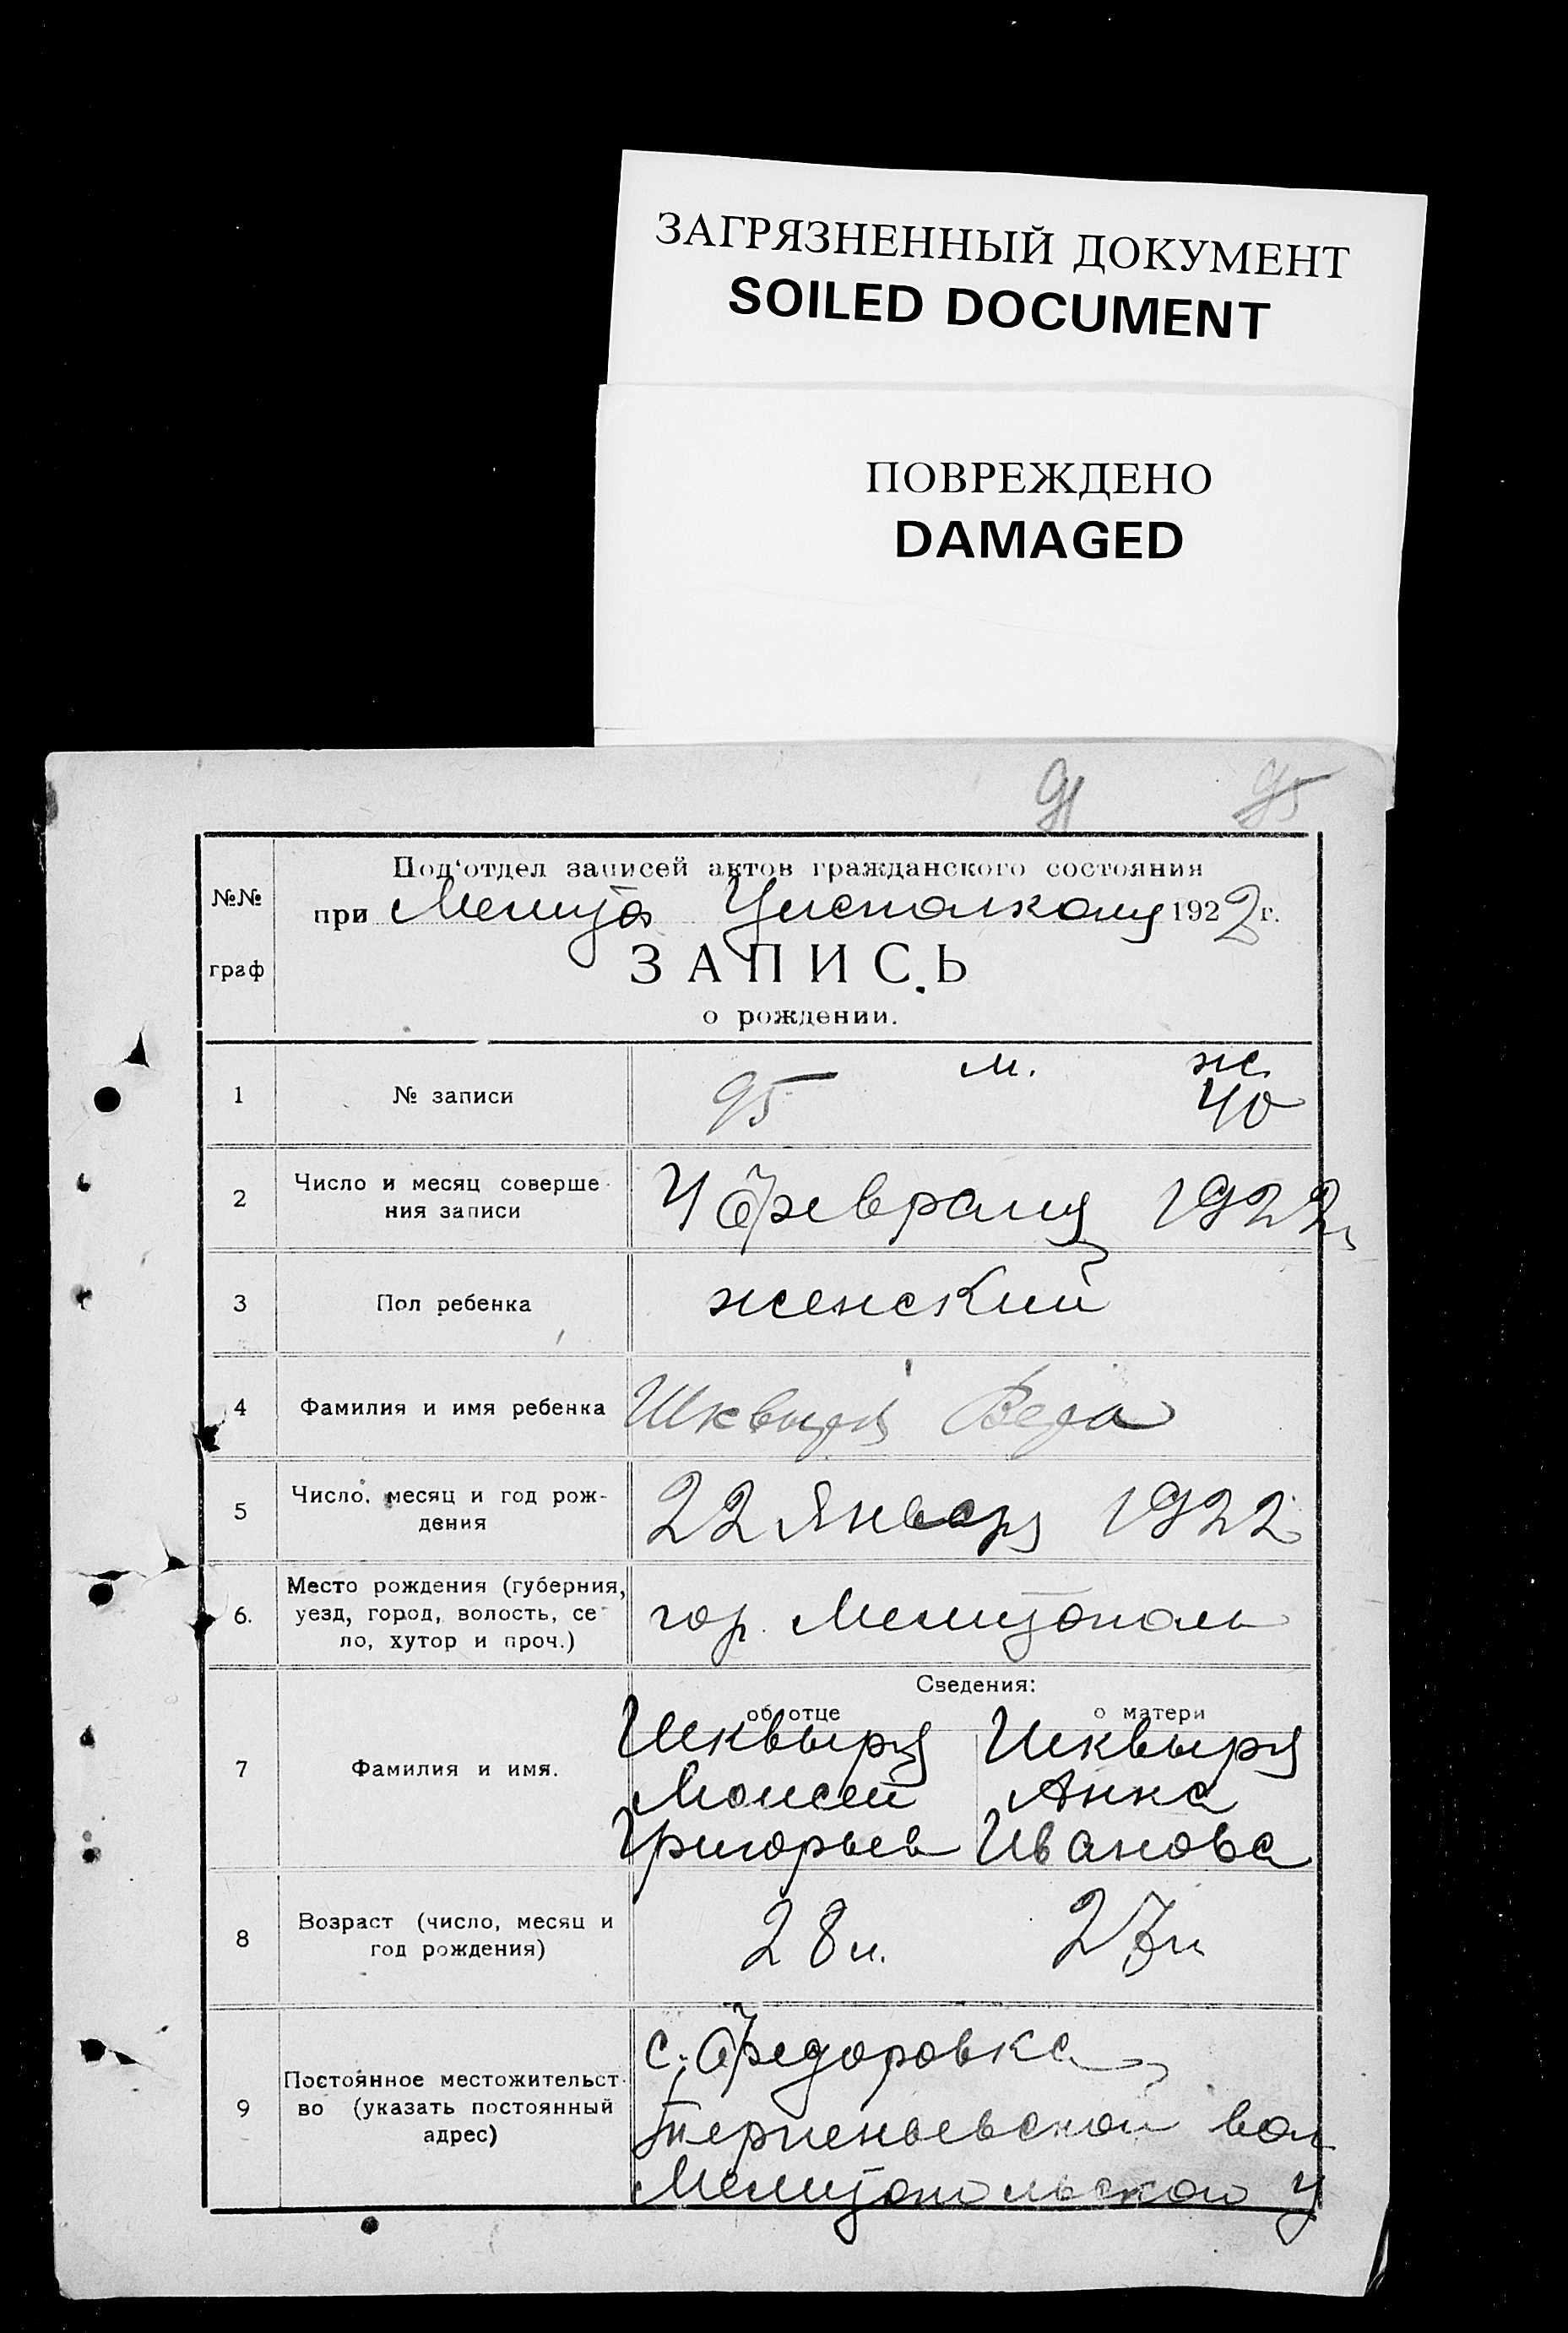 ЗАГРЯЗНЕННЫЙ ДОКУМЕНТ
SOILED DOCUMENT
ПОВРЕЖДЕНО
DAMAGED
91 95
№№ граф
Под‘отдел записей актов гражданского состояния
при Мелито Уисполкому 1922 г.
ЗАПИСЬ
о рождении.
1 № записи 95 м. ж. 40
2 Число и месяц соверше-
ния записи
4 февраля 1922
3 Пол ребенка женский
4 Фамилия и имя ребенка Шквыря Вера
5 Число, месяц и год рож-
дения
22 Январ 1922
6. Место рождения (губерния,
уезд, город, волость, се-
ло, хутор и проч.)
гор. Мелитополь
Сведения:
об отце о матери
7 Фамилия и имя.
Шквыря Шквыря
Моисей Анна
Григорьев Иванова
8 Возраст (число, месяц и
год рождения)
28 л. 27 л
9 Постоянное местожительст-
во (указать постоянный
адрес)
с. Федоровка
Терпеньевской вол
Мелитопольского у